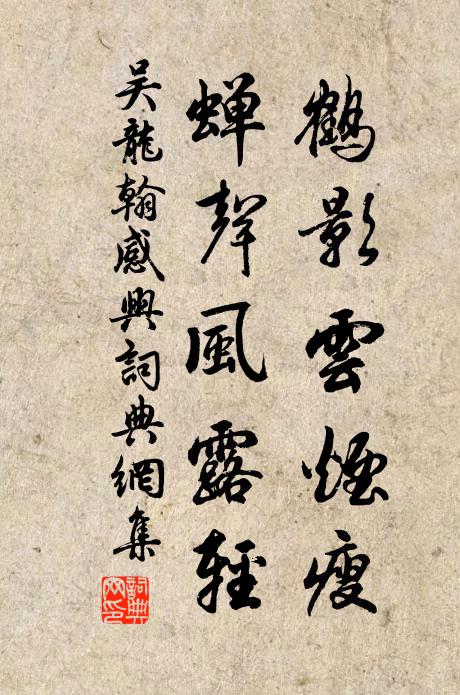 鶴影雲煙瘦
蟬聲風露輕
吳龍翰感興詞典網集
詞典网印